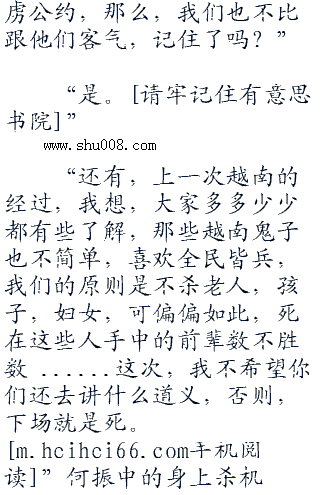 虏公约，那么，我们也不比
跟他们客气，记住了吗？”
“是。[请牢记住有意思
书院]”
www.shu008.com
“还有，上一次越南的
经过，我想，大家多多少少
都有些了解，那些越南鬼子
也不简单，喜欢全民皆兵，
我们的原则是不杀老人，孩
子，妇女，可偏偏如此，死
在这些人手中的前辈数不胜
数......这次，我不希望你
们还去讲什么道义，否则，
下场就是死。
[m.hcihci66.com手机阅
读]”何振中的身上杀机